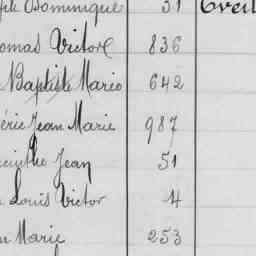 Dominique 31 Creil
Victore 836
Baptiste Mario 642
érie Jean Marie 987
Jean 51
Louis Victor 4
Marie 253